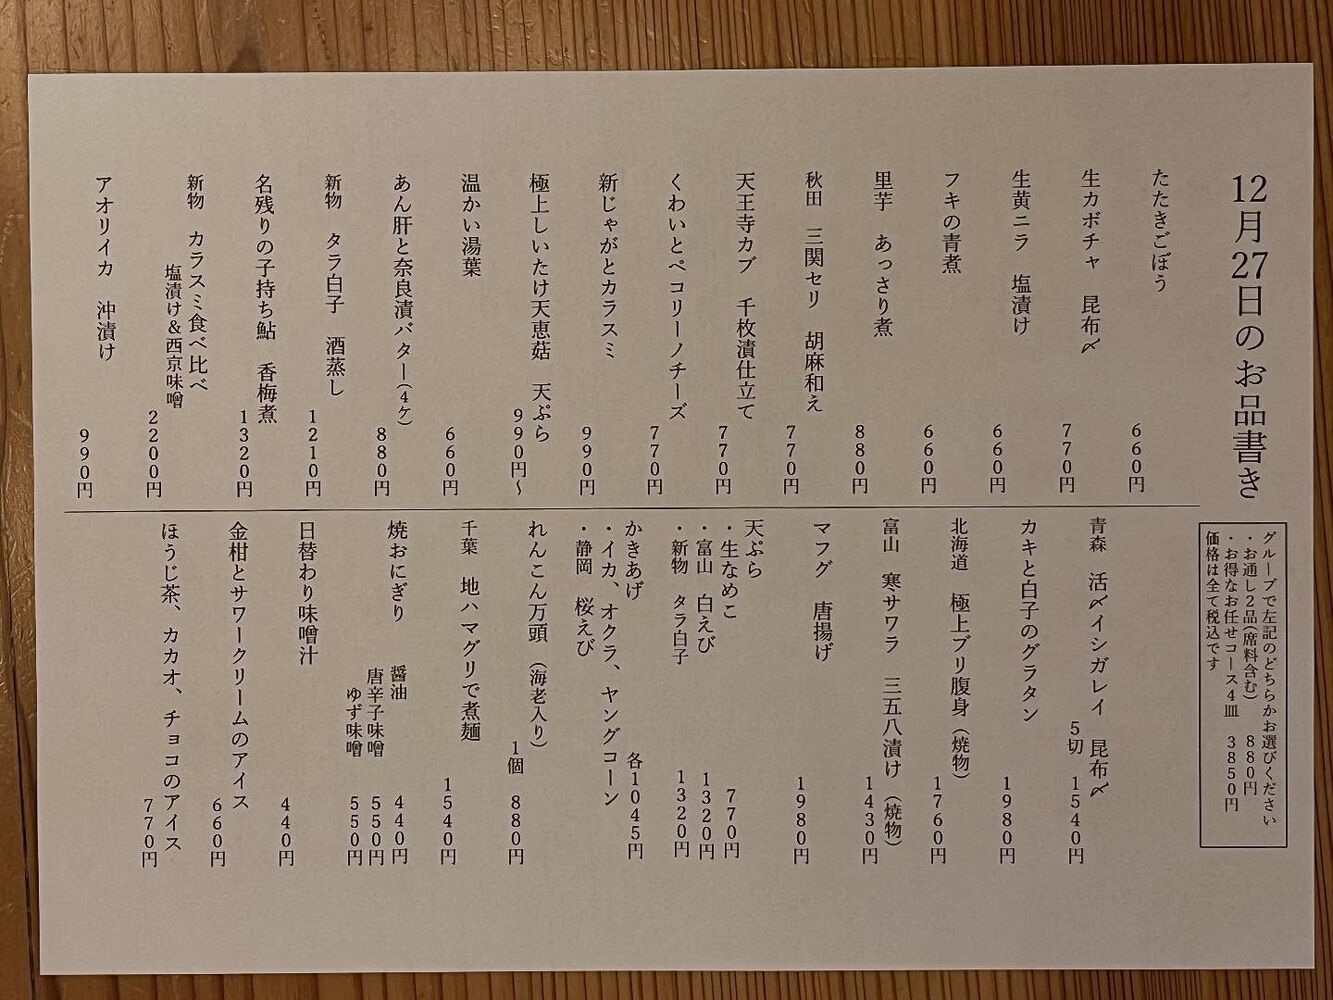 12月27日のお品書き
グループで左記のどちらかお選びください
・お通し2品(席料含む) 880円
・お得なお任せコース4皿 3850円
価格は全て税込です
たたきごぼう 660円
生カボチャ 昆布〆 770円
生黄ニラ 塩漬け 660円
フキの青煮 660円
里芋 あっさり煮 880円
秋田 三関セリ 胡麻和え 770円
天王寺カブ 千枚漬仕立て 770円
くわいとペコリーノチーズ 770円
新じゃがとカラスミ 990円
極上しいたけ天恵菇 天ぷら 990円~
温かい湯葉 660円
あん肝と奈良漬バター(4ケ) 880円
新物 タラ白子 酒蒸し 1210円
名残りの子持ち鮎 香梅煮 1320円
新物 カラスミ食べ比べ
塩漬け&西京味噌 2200円
アオリイカ 沖漬け 990円
青森 活〆イシガレイ 昆布〆
5切 1540円
カキと白子のグラタン 1980円
北海道 極上ブリ腹身(焼物) 1760円
富山 寒サワラ 三五八漬け(焼物) 1430円
マフグ 唐揚げ 1980円
天ぷら
・生なめこ 770円
・富山 白えび 1320円
・新物 タラ白子 1320円
かきあげ 各1045円
・イカ、オクラ、ヤングコーン
・静岡 桜えび
れんこん万頭(海老入り)
1個 880円
千葉 地ハマグリで煮麺 1540円
焼おにぎり 醤油 440円
唐辛子味噌 550円
ゆず味噌 550円
日替わり味噌汁 440円
金柑とサワークリームのアイス 660円
ほうじ茶、カカオ、チョコのアイス 770円